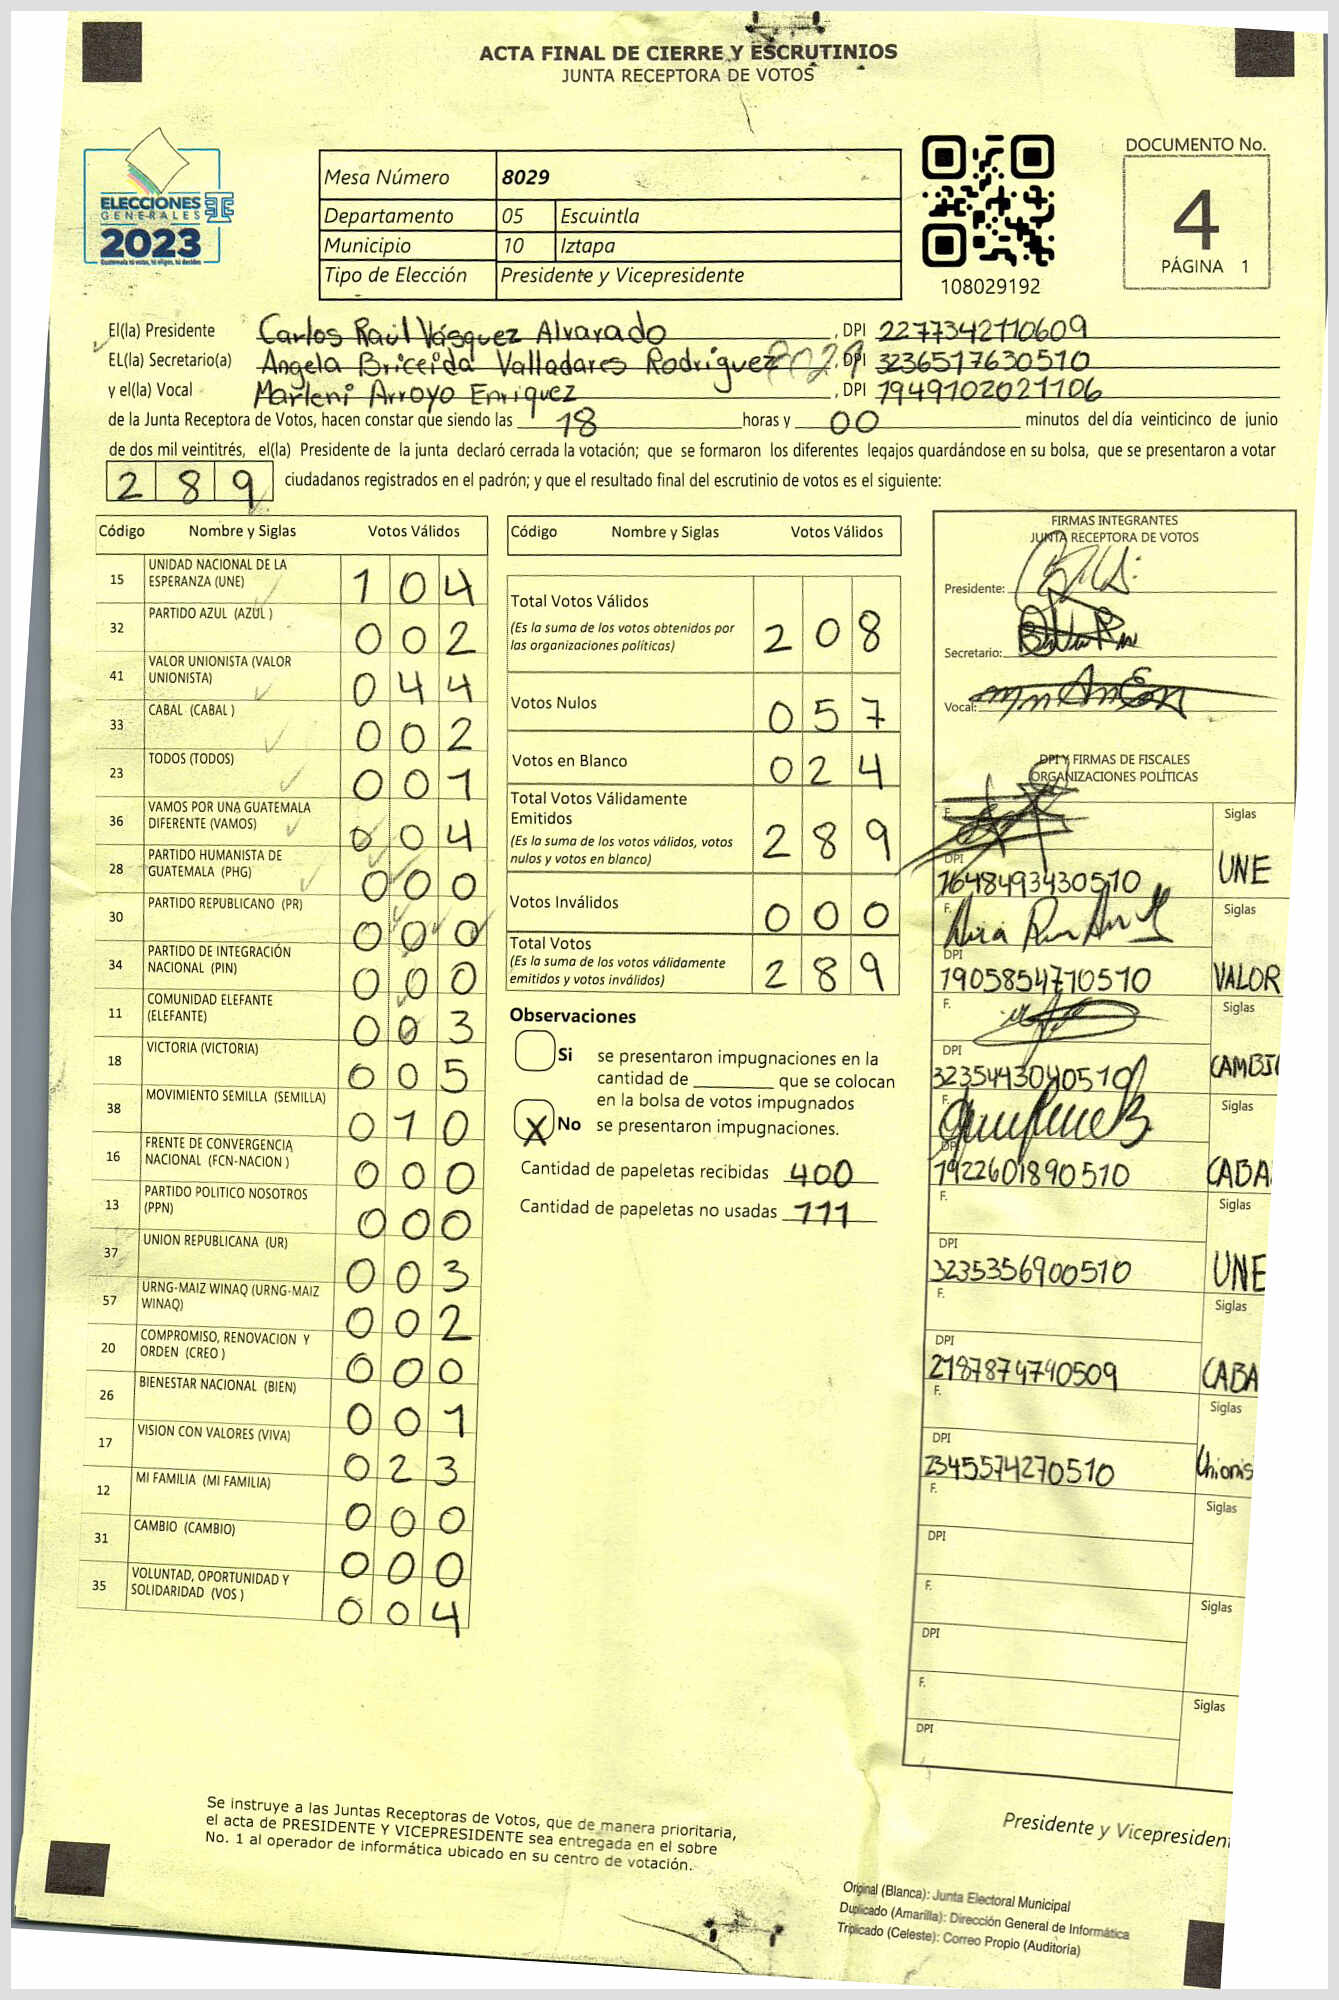 ACTA FINAL DE CIERRE Y ESCRUTINIOS
JUNTA RECEPTORA DE VOTOS
ELECCIONES
GENERALES
2023
Guatemala tú votas, tú eliges, tú decides
Mesa Número 8029
Departamento 05 Escuintla
Municipio 10 Iztapa
Tipo de Elección Presidente y Vicepresidente
108029192
DOCUMENTO No.
4
PÁGINA 1
El(la) Presidente Carlos Raúl Vásquez Alvarado , DPI 2277342110609
EL(la) Secretario(a) Angela Briceida Valladares Rodríguez 8029 , DPI 3236517630510
y el(la) Vocal Marleni Arroyo Enriquez , DPI 1949102021106
de la Junta Receptora de Votos, hacen constar que siendo las 18 horas y 00 minutos del día veinticinco de junio
de dos mil veintitrés, el(la) Presidente de la junta declaró cerrada la votación; que se formaron los diferentes legajos guardándose en su bolsa, que se presentaron a votar
289 ciudadanos registrados en el padrón; y que el resultado final del escrutinio de votos es el siguiente:
Código Nombre y Siglas Votos Válidos
15 UNIDAD NACIONAL DE LA ESPERANZA (UNE) 104
32 PARTIDO AZUL (AZUL ) 002
41 VALOR UNIONISTA (VALOR UNIONISTA) 044
33 CABAL (CABAL ) 002
23 TODOS (TODOS) 001
36 VAMOS POR UNA GUATEMALA DIFERENTE (VAMOS) 004
28 PARTIDO HUMANISTA DE GUATEMALA (PHG) 000
30 PARTIDO REPUBLICANO (PR) 000
34 PARTIDO DE INTEGRACIÓN NACIONAL (PIN) 000
11 COMUNIDAD ELEFANTE (ELEFANTE) 003
18 VICTORIA (VICTORIA) 005
38 MOVIMIENTO SEMILLA (SEMILLA) 010
16 FRENTE DE CONVERGENCIA NACIONAL (FCN-NACION ) 000
13 PARTIDO POLITICO NOSOTROS (PPN) 000
37 UNION REPUBLICANA (UR) 003
57 URNG-MAIZ WINAQ (URNG-MAIZ WINAQ) 002
20 COMPROMISO, RENOVACION Y ORDEN (CREO ) 000
26 BIENESTAR NACIONAL (BIEN) 001
17 VISION CON VALORES (VIVA) 023
12 MI FAMILIA (MI FAMILIA) 000
31 CAMBIO (CAMBIO) 000
35 VOLUNTAD, OPORTUNIDAD Y SOLIDARIDAD (VOS ) 004
Código Nombre y Siglas Votos Válidos
Total Votos Válidos 208
(Es la suma de los votos obtenidos por
las organizaciones políticas)
Votos Nulos 057
Votos en Blanco 024
Total Votos Válidamente
Emitidos 289
(Es la suma de los votos válidos, votos
nulos y votos en blanco)
Votos Inválidos 000
Total Votos 289
(Es la suma de los votos válidamente
emitidos y votos inválidos)
Observaciones
Si se presentaron impugnaciones en la
cantidad de ________ que se colocan
en la bolsa de votos impugnados
X No se presentaron impugnaciones.
Cantidad de papeletas recibidas 400
Cantidad de papeletas no usadas 111
FIRMAS INTEGRANTES
JUNTA RECEPTORA DE VOTOS
Presidente:
Secretario:
Vocal:
DPI Y FIRMAS DE FISCALES
ORGANIZACIONES POLÍTICAS
F. Siglas
DPI
1648493430510 UNE
F. Siglas
DPI
1905854710510 VALOR
F. Siglas
DPI
3235443040510 CAMBIO
F. Siglas
DPI
1922601890510 CABA
F. Siglas
DPI
3235356900510 UNE
F. Siglas
DPI
2187874740509 CABA
F. Siglas
DPI
2345574270510 Unionis
F. Siglas
DPI
F. Siglas
DPI
F. Siglas
DPI
Se instruye a las Juntas Receptoras de Votos, que de manera prioritaria,
el acta de PRESIDENTE Y VICEPRESIDENTE sea entregada en el sobre
No. 1 al operador de informática ubicado en su centro de votación.
Presidente y Vicepresiden
Original (Blanca): Junta Electoral Municipal
Duplicado (Amarilla): Dirección General de Informática
Triplicado (Celeste): Correo Propio (Auditoría)